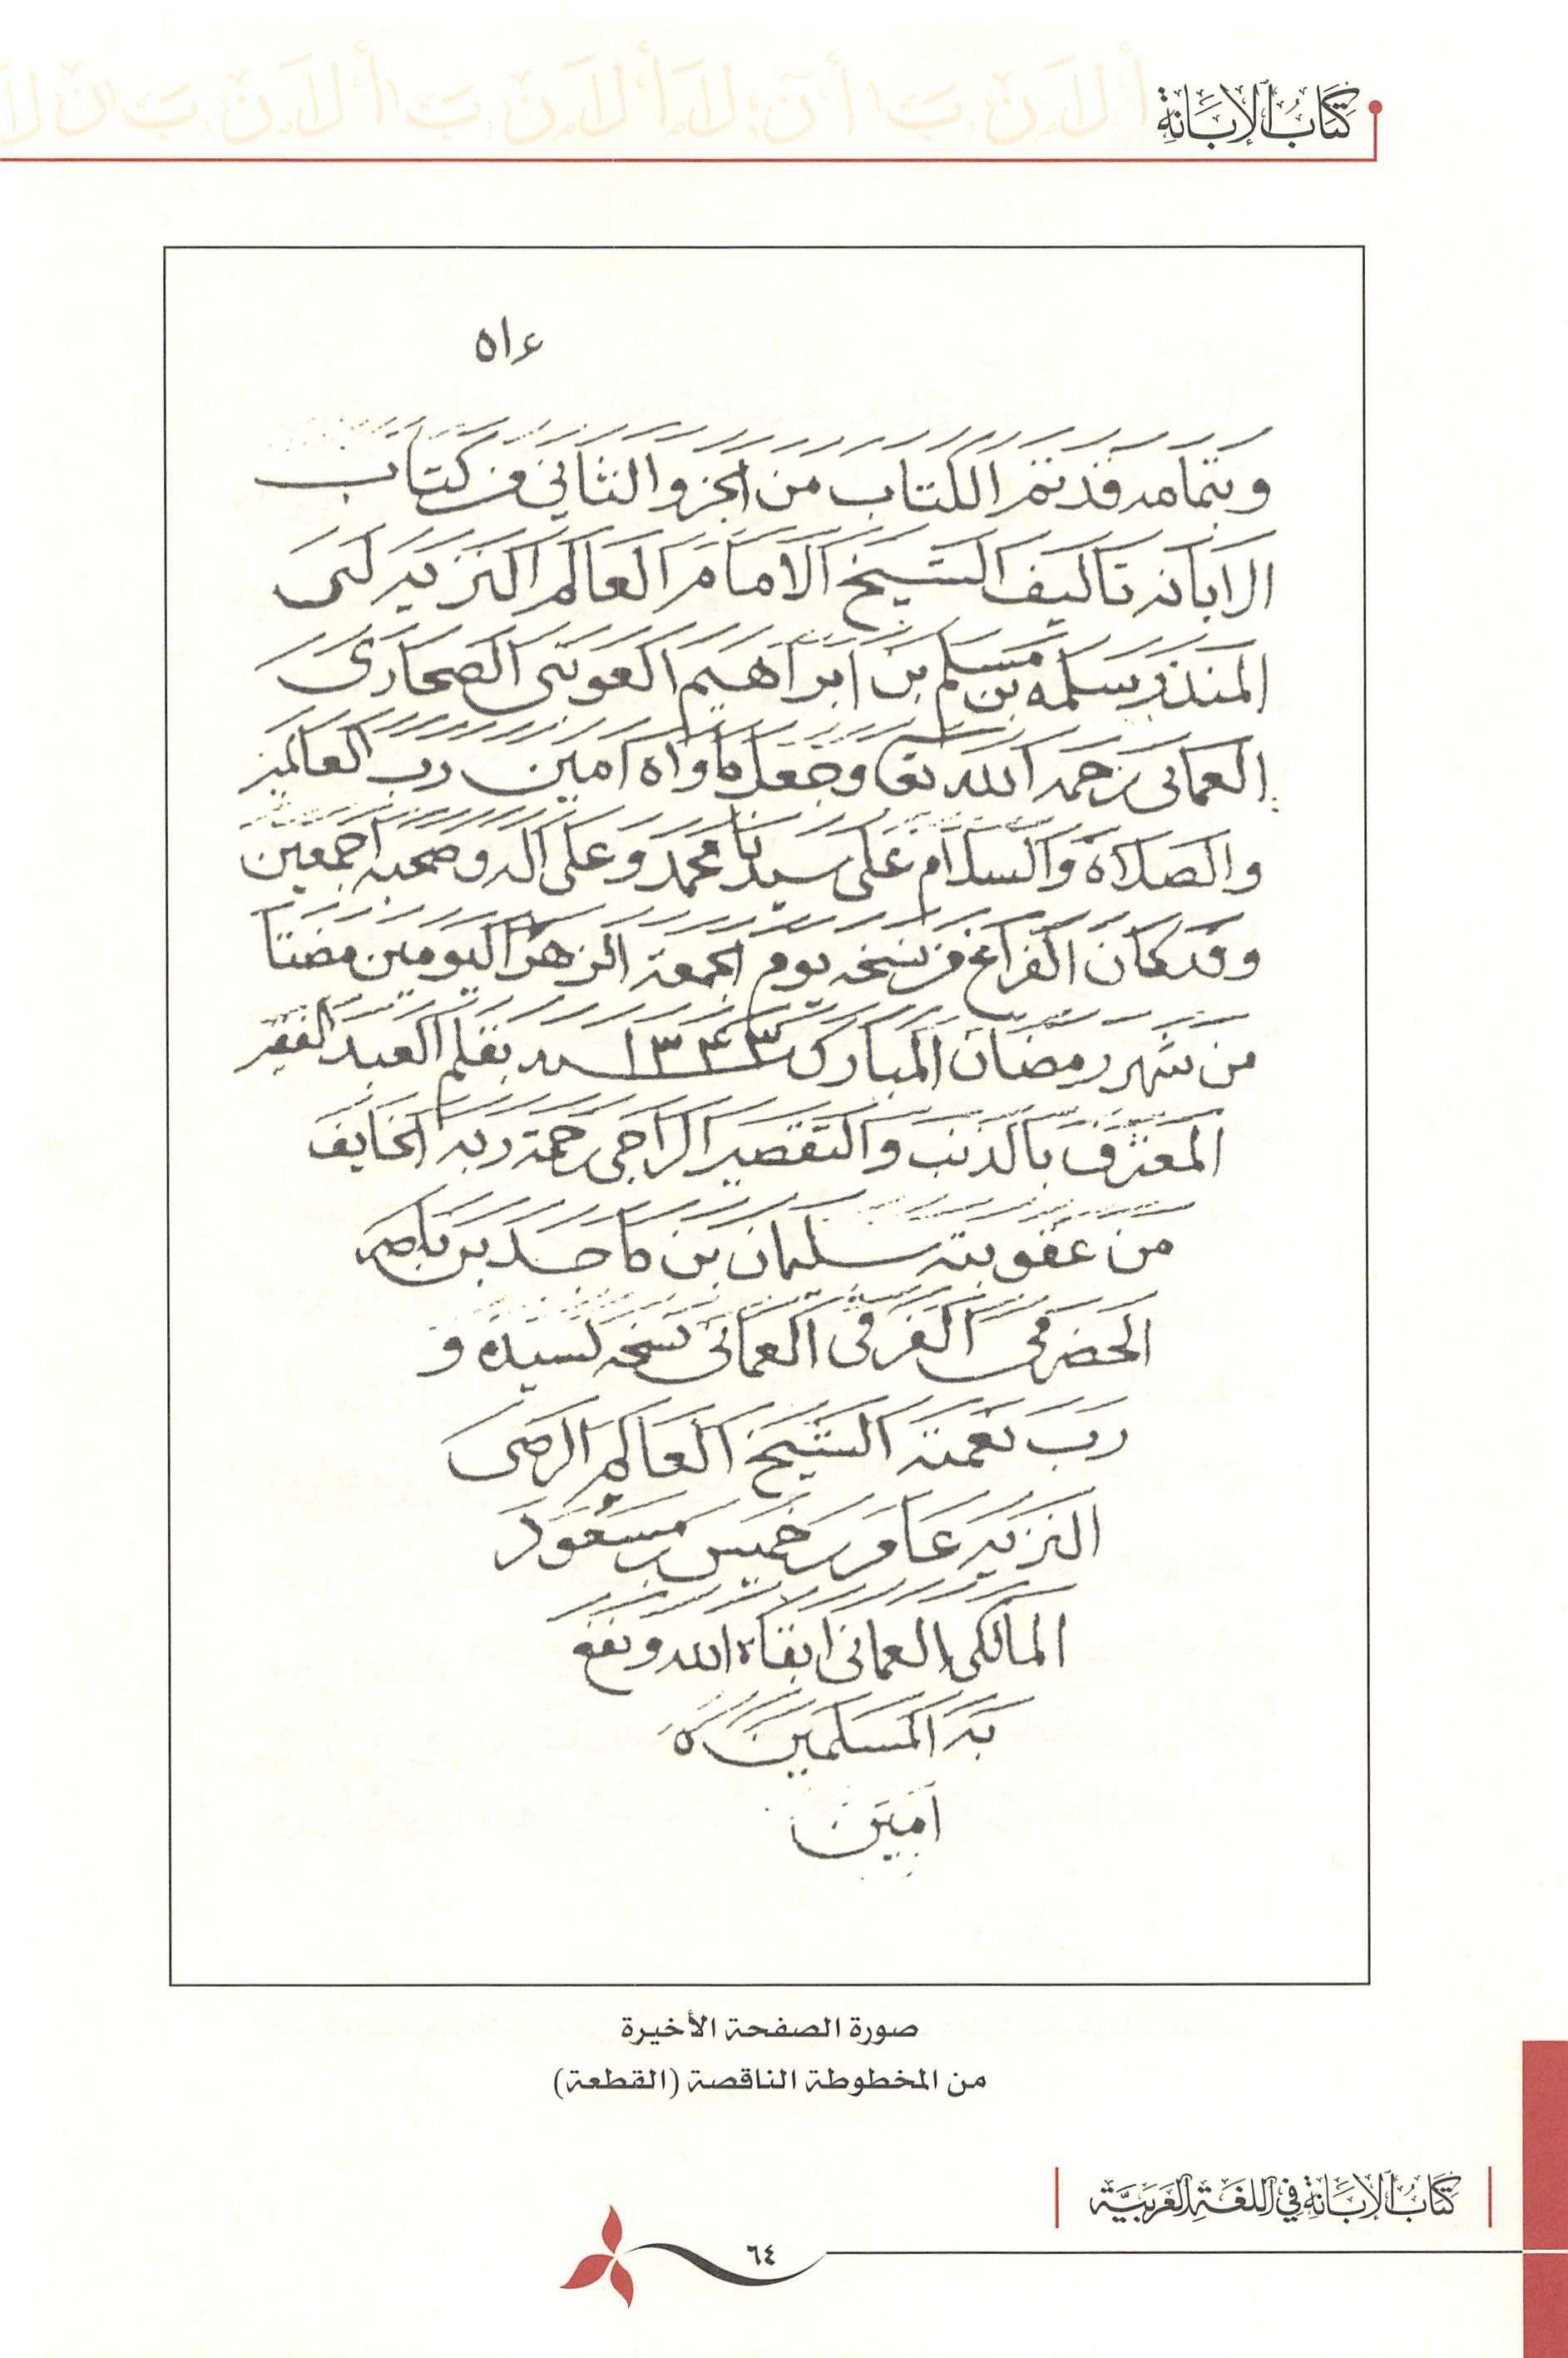 كتاب الإبانة
٥١٤
وبتمامه قد تم الكتاب من الجزو الثاني من كتاب
الابانه تاليف الشيخ الامام العالم النزيه ابى
المنذر سلمه بن مسلم بن ابراهيم العوتبى الصحارى
العمانى رحمه الله تعا وجعل ماواه امين رب العالمين
والصلاة والسلام على سيدنا محمد وعلى اله وصحبه اجمعين
وقد كان الفراغ من نسخه يوم الجمعة الزهرا ليومين مضتا
من شهر رمضان المبارك ١٣٤٣ سنه بقلم العبد الفقير
المعترف بالذنب والتقصير الراجى رحمة ربه الخايف
من عقوبته سليمان بن ماجد بن ناصر
الحضرمى الغرفى العمانى نسخه لسيده و
رب نعمته الشيخ العالم الرضى
النزيه عامر بن خميس بن مسعود
المالكى العمانى ابقاه الله ونفع
به المسلمين
امين
صورة الصفحة الأخيرة
من المخطوطة الناقصة (القطعة)
كتاب الإبانة في اللغة العربية
٦٤